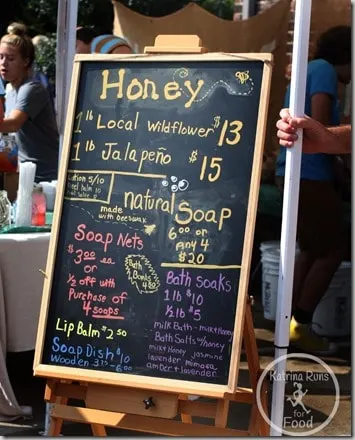 Honey
1 lb Local Wildflower $13
1 lb Jalapeño $15
natural Soap
made with beeswax
6.00 ea or
Any 4
$20
Soap Nets
$3.00 ea
or
1/2 off with
Purchase of
4 soaps
Bath
Bombs
Lip Balm $2.50
Soap Dish $10
Wooden
Bath Soaks
1 lb $10
1/2 lb $5
milk Bath - milk+Honey
Bath Salts
milk + Honey jasmine
lavender mimosa
amber + lavender
Katrina Runs
for
Food